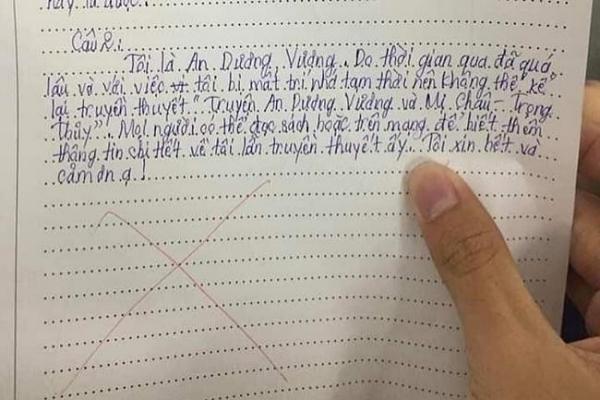 Câu 2:
Tôi là An Dương Vương. Do thời gian qua đã quá
lâu và với việc tôi bị mất trí nhớ tạm thời nên không thể "kể
lại truyền thuyết "Truyện An Dương Vương và Mị Châu - Trọng
Thủy". Mọi người có thể đọc sách hoặc trên mạng để biết thêm
thông tin chi tiết về tôi lẫn truyền thuyết ấy. Tôi xin hết và
cảm ơn ạ!